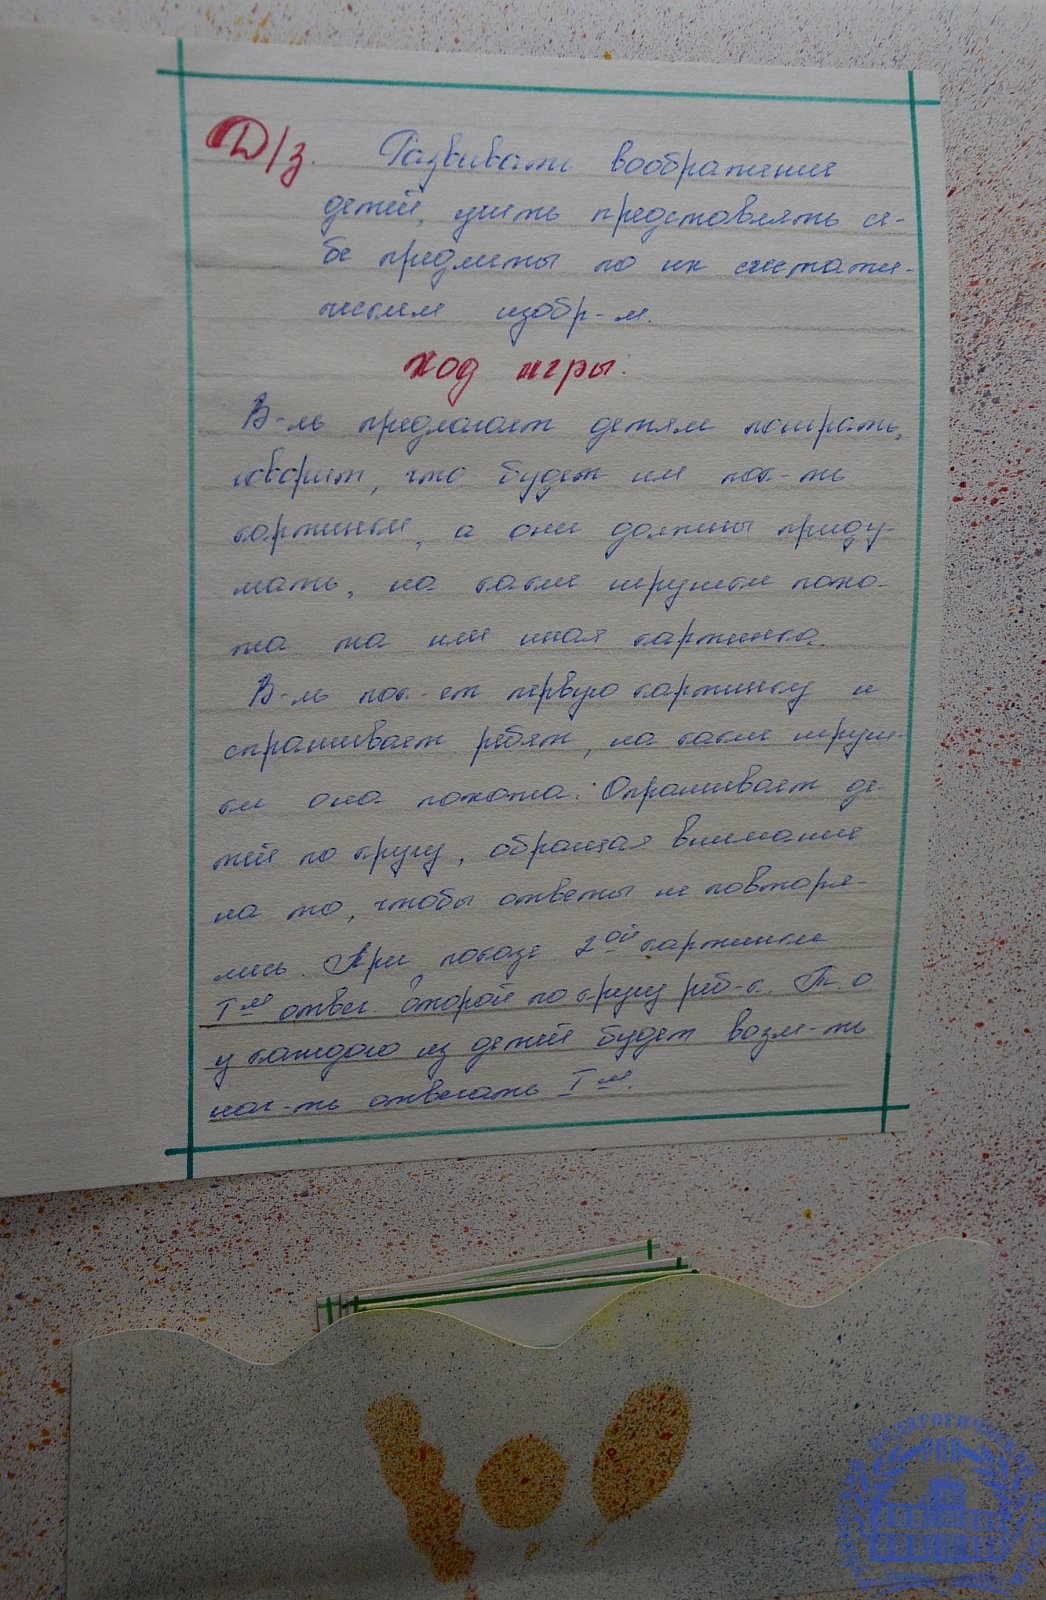 Д/з. Развивать воображение
детей, учить представлять се-
бе предметы по их схемати-
ческим изобр-м.
Ход игры:
В-ль предлагает детям поиграть,
говорит, что будет им пок-ть
картинки, а они должны приду-
мать, на какие игрушки похо-
жа та или иная картинка.
В-ль пок-ет первую картинку и
спрашивает ребят, на какие игруш-
ки она похожа. Опрашивает де-
тей по кругу, обращая внимание
на то, чтобы ответы не повторя-
лись. При показе 2ой картинки
Iм отвеч. второй по кругу реб-к. Т. о
у каждого из детей будет возм-ть
отвечать Iм.
педагогический
РПК